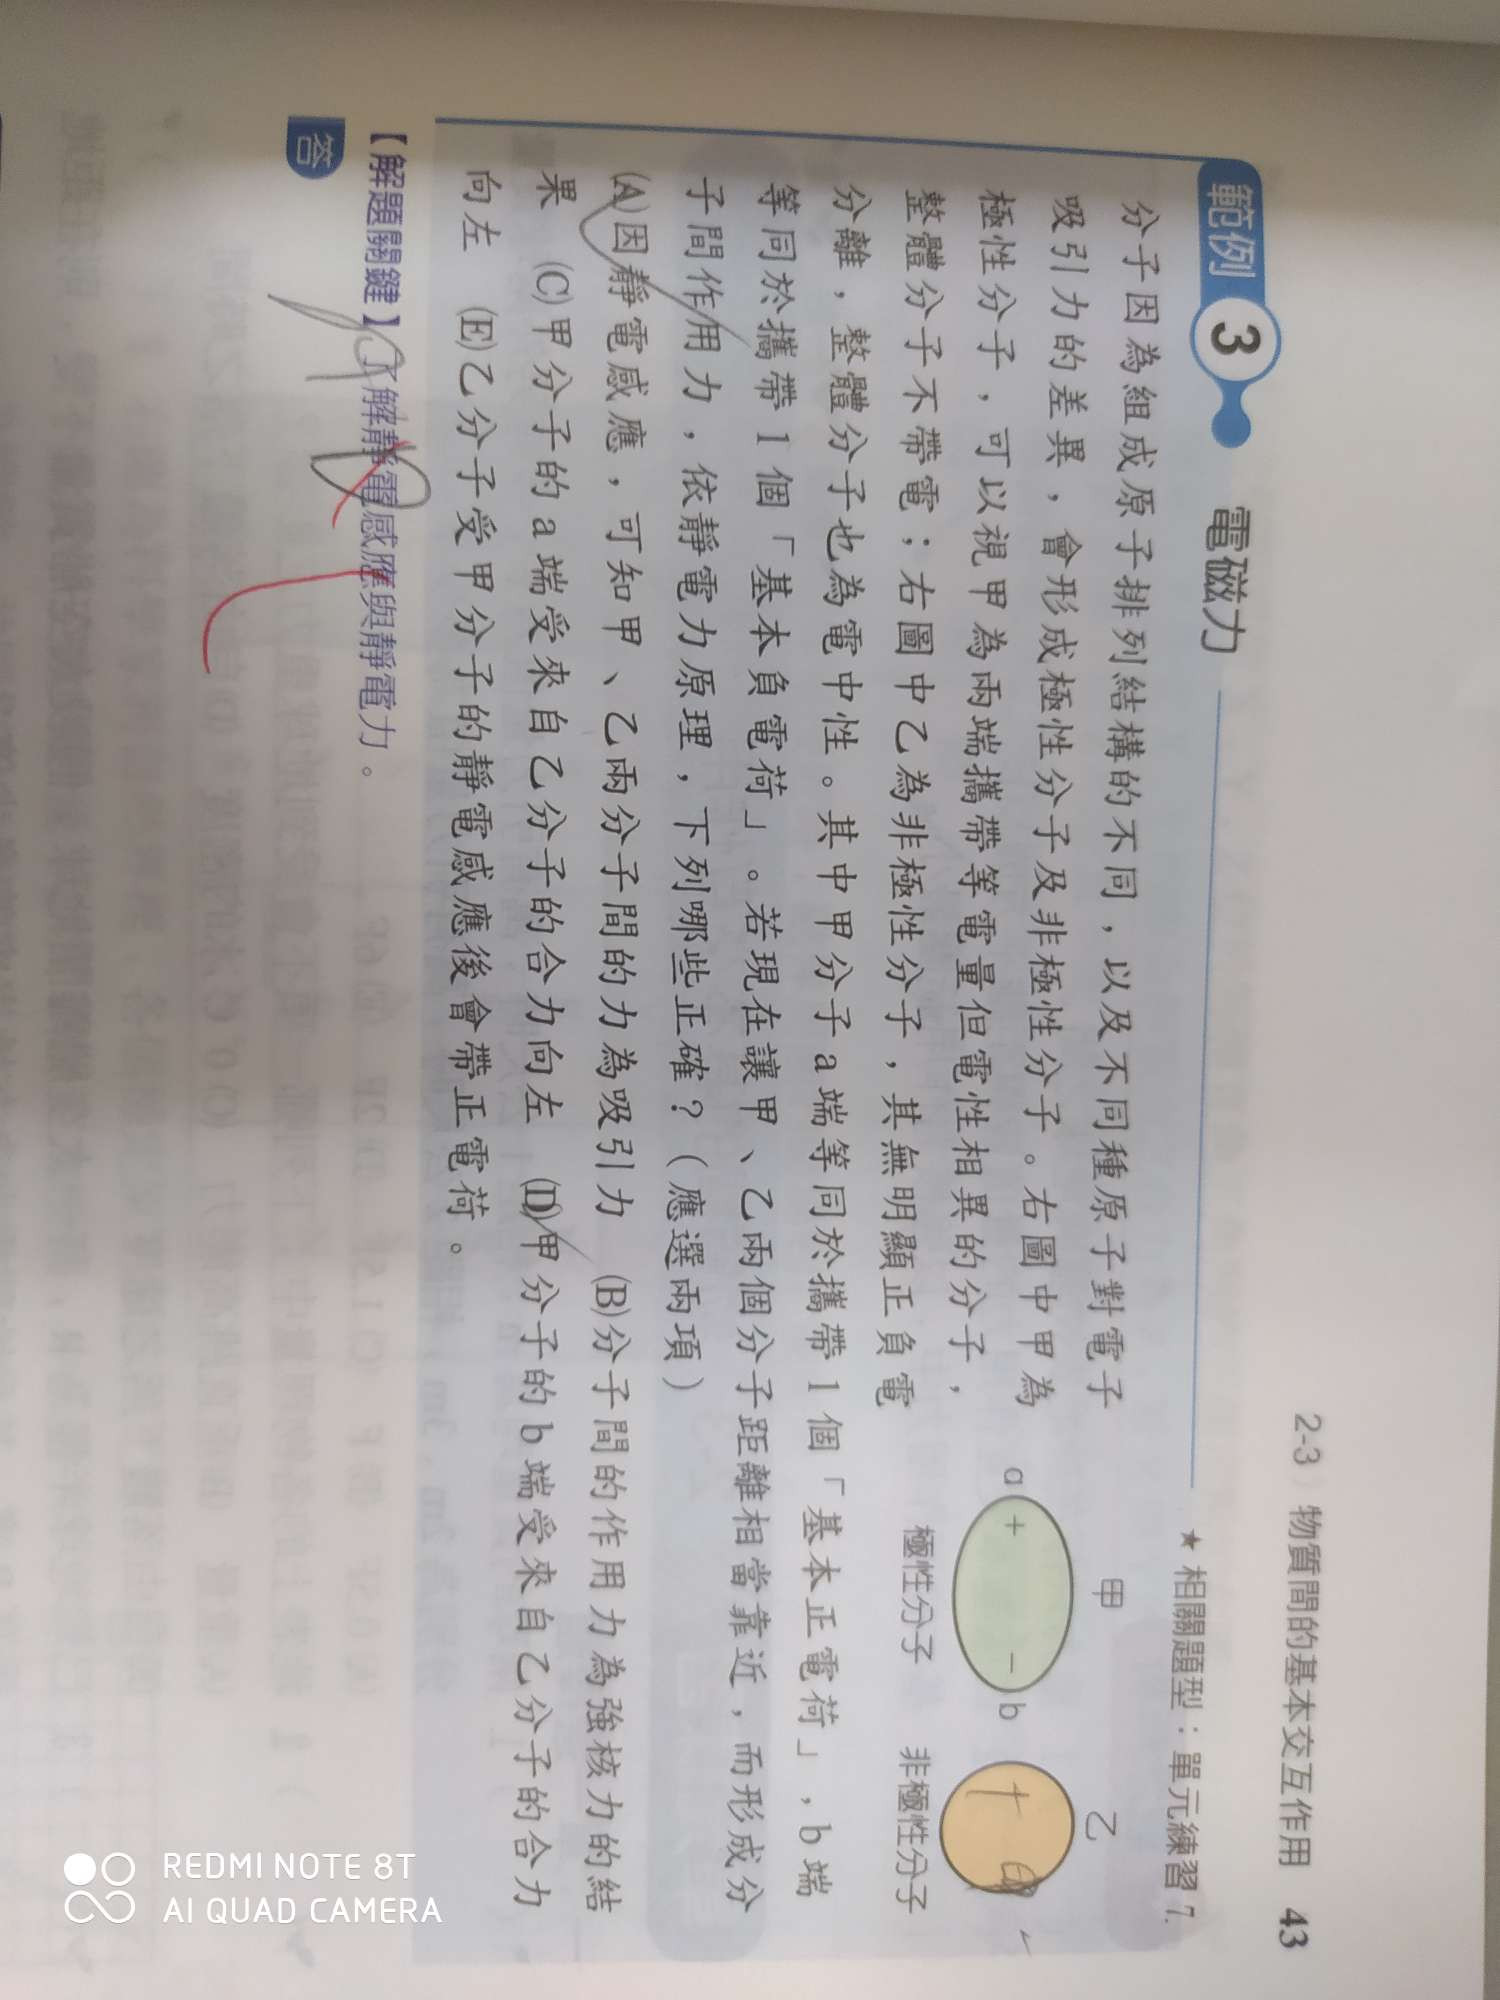 2-3 物質間的基本交互作用 43
範例 3 電磁力
★相關題型：單元練習 7.
分子因為組成原子排列結構的不同，以及不同種原子對電子
吸引力的差異，會形成極性分子及非極性分子。右圖中甲為
極性分子，可以視甲為兩端攜帶等電量但電性相異的分子，
整體分子不帶電；右圖中乙為非極性分子，其無明顯正負電
分離，整體分子也為電中性。其中甲分子a端等同於攜帶1個「基本正電荷」，b端
等同於攜帶1個「基本負電荷」。若現在讓甲、乙兩個分子距離相當靠近，而形成分
子間作用力，依靜電力原理，下列哪些正確？（應選兩項）
(A)因靜電感應，可知甲、乙兩分子間的力為吸引力 (B)分子間的作用力為強核力的結
果 (C)甲分子的a端受來自乙分子的合力向左 (D)甲分子的b端受來自乙分子的合力
向左 (E)乙分子受甲分子的靜電感應後會帶正電荷。
甲 乙
a + − b +
極性分子 非極性分子
【解題關鍵】了解靜電感應與靜電力。
答
REDMI NOTE 8T
AI QUAD CAMERA